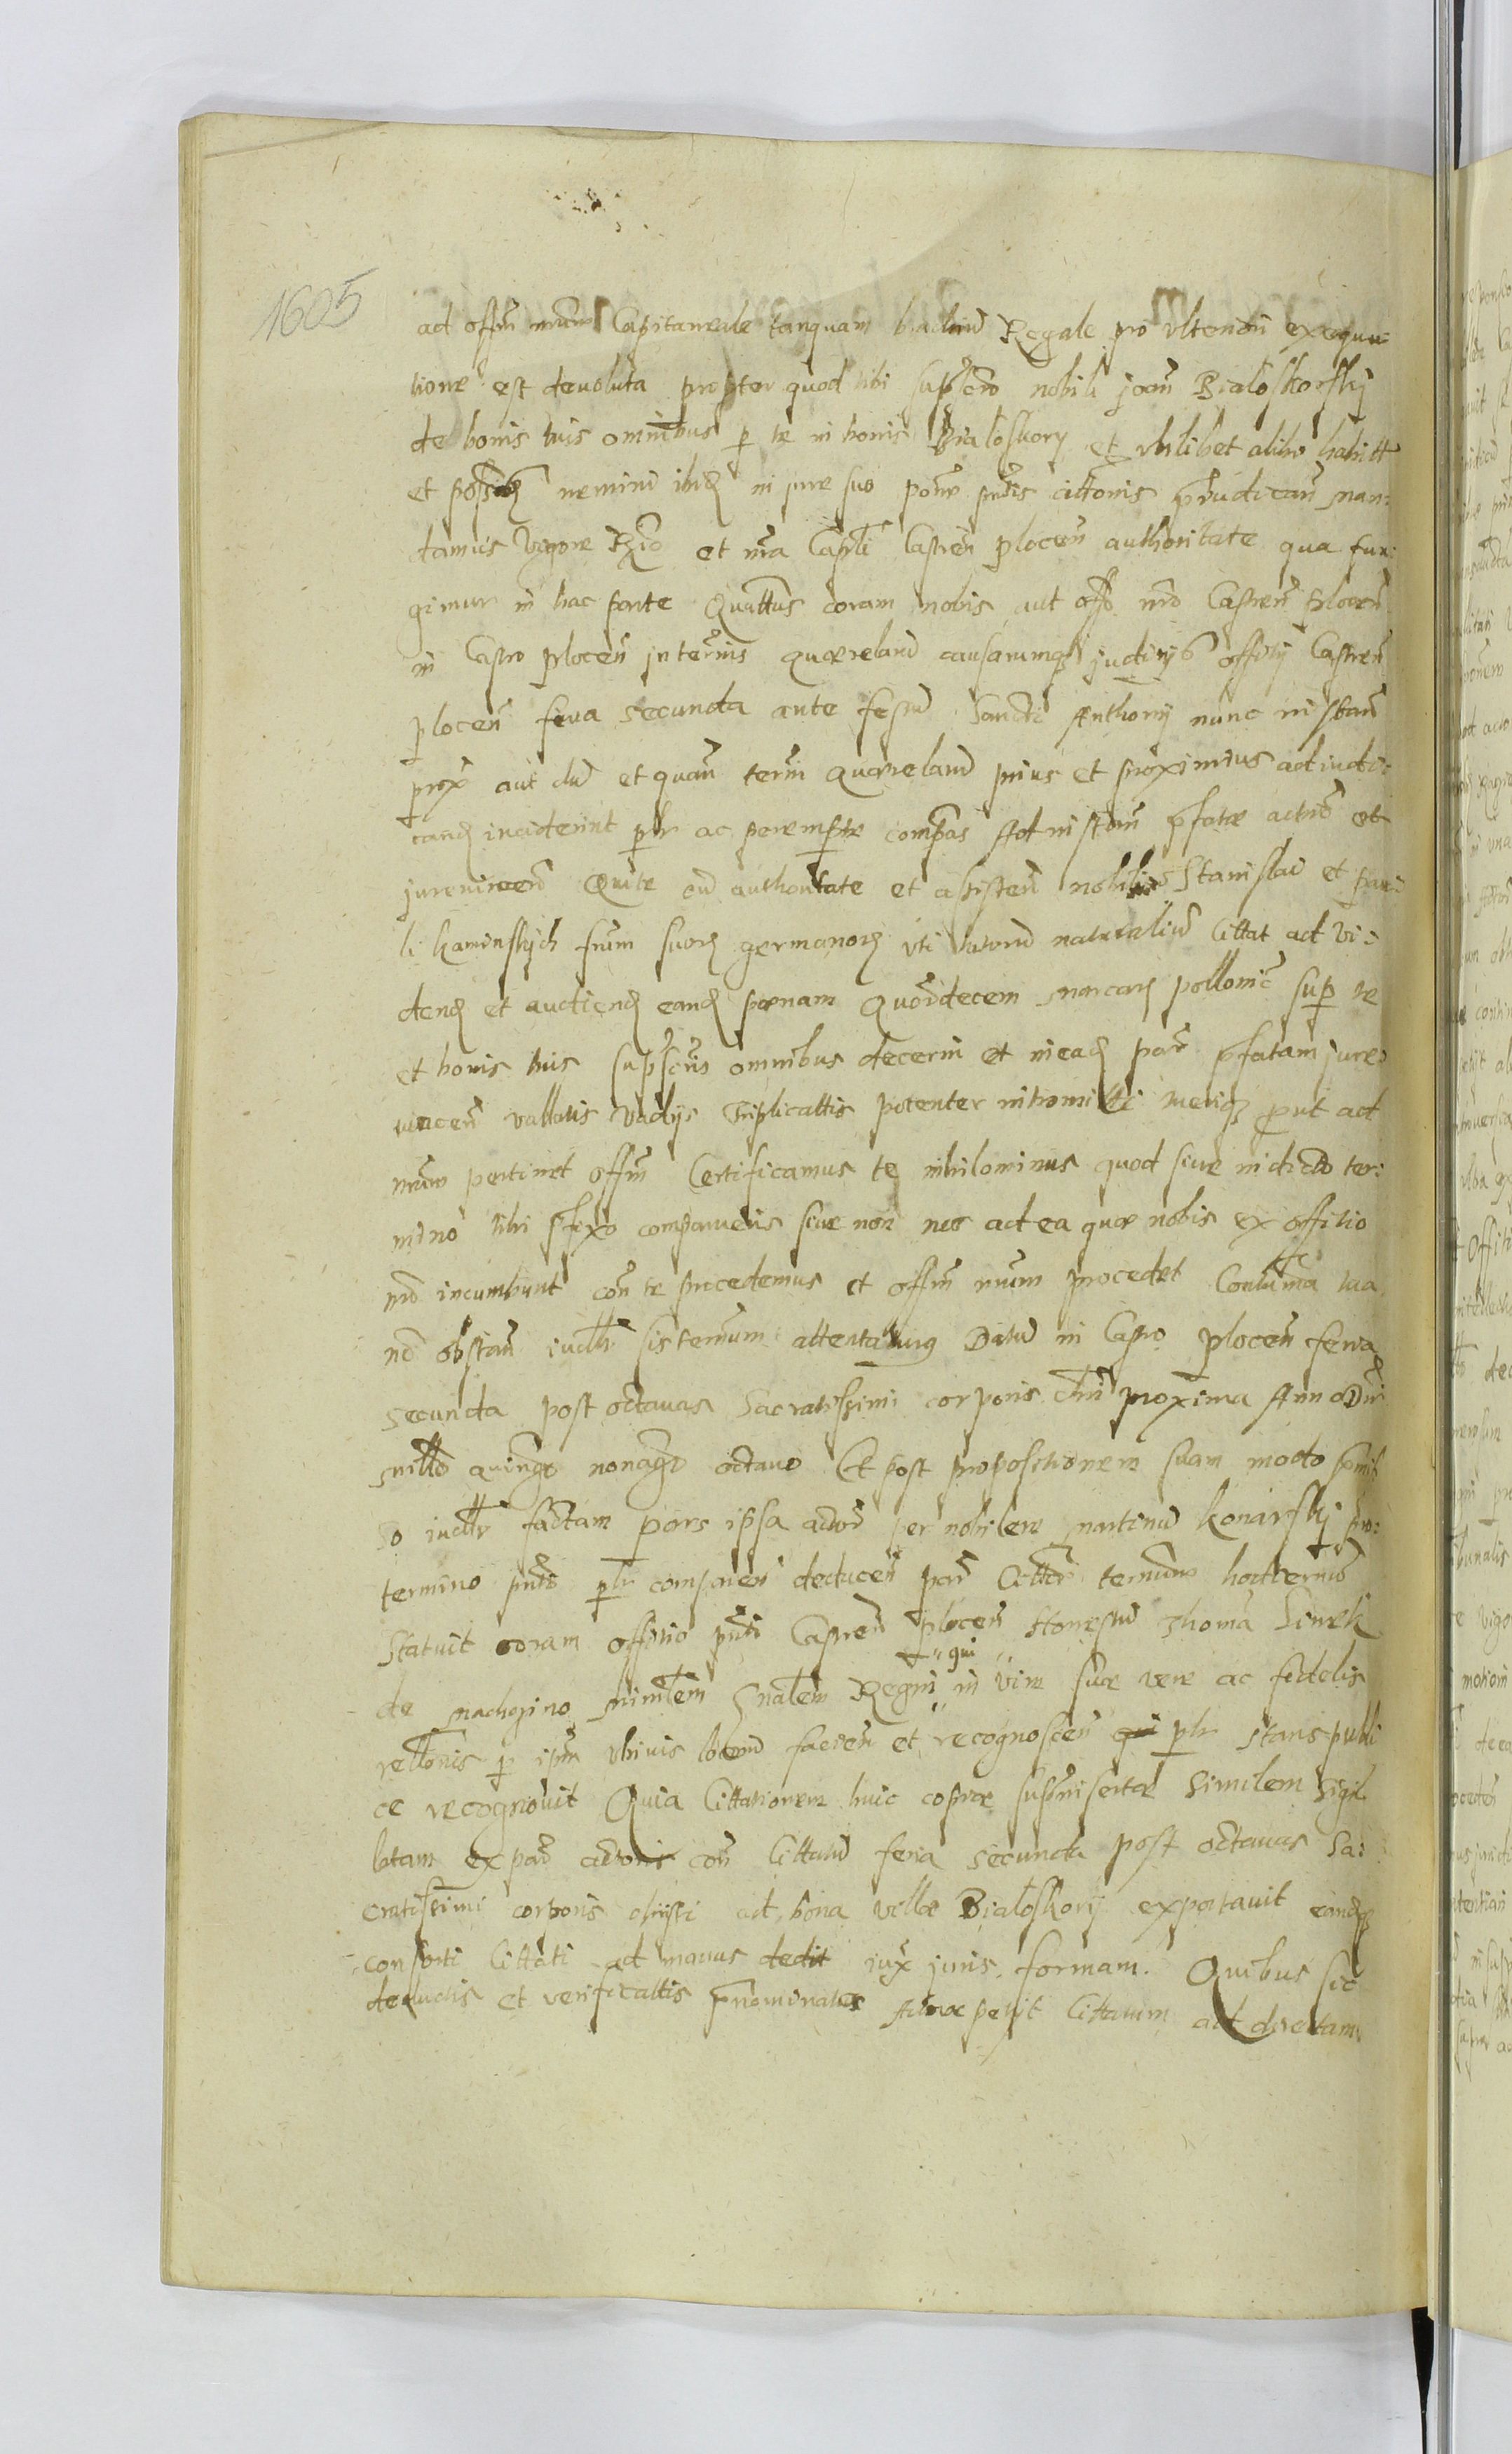 1605
ad offm nrum Capitaneale tanquam brachiu Regale pro vlteriori exequu-
tione est devoluta propter quod tibi supscro nobili joan Bialoskorskij
de bonis tuis omnibus p te in bonis Bialoskory et vbilibet alibi habitt
et possess nemini ibid in jure suo pntis cittonis prudican man:
tamus vigore Regio et nra Capli Castren plocen authoritate qua fun:
gimur in hac parte Quattus coram nobis aut offo nro Castren plocen
in Castro plocen in terminis quaereland causarumq judicijs officij Castren
plocen feria secunda ante festu Sancti Anthonij nunc instan
prox aut du et quan termi quaereland prius et proximius adiudi:
cand inciderint plr ac peremptre compas Ad instan pfatae actric et
jurevincen Quae cu authoritate et assisten nobiliu Stanislai et Pau:
li Kaminskijch frum suor germanor vti tutoru naturaliu Cittat ad vi:
dend et audiend eand poenam Quordecem marcar pollonic sup te
et bonis tuis supscris omnibus decerni et in ead par pfatam jure:
vincen vallatis vadijs triplicattis potenter intromitti tueriq prout ad
nrum pertinet offm Certificamus te nihilominus quod siue in dicto ter:
mino tibi pfixo comparueris siue non nos ad ea quae nobis ex offitio
nro incumbunt con te procedemus et offm nrum procedet Contuma tua
no obstan iudlr sis terminum attentaturus Datu in Castro plocen feria
secunda post octauas Sacratissimi corporis Chri proxima Anno Dni
millo quingo nonago octauo Et post propositionem suam modo pmis
so iudlr factam pars ipsa actor per nobilem martinu Konarskj pro:
termino pnti plr comparen deducen par Cittat terminum hodiernu
Statuit coram offitio pnti Castren plocen Honestu Thoma Siwek
qui
de machcino minlem gnalem Regni in vim suae verae ac fidelis
relltonis p ipm vbiuis locoru facien et recognoscen qui plr stans publi
ce recognouit Quia Cittationem huic copiae supinsertae similem Sigil
latam ex par actoris con Cittatu feria secunda post octauas Sa:
cratissimi corporis christi ad bona villae Bialoskory exportauit eandq
consorti Cittati ad manus dedit iux juris formam. Quibus sic
deductis et verificattis pnominates Actrix petijt Cittatum ad directam